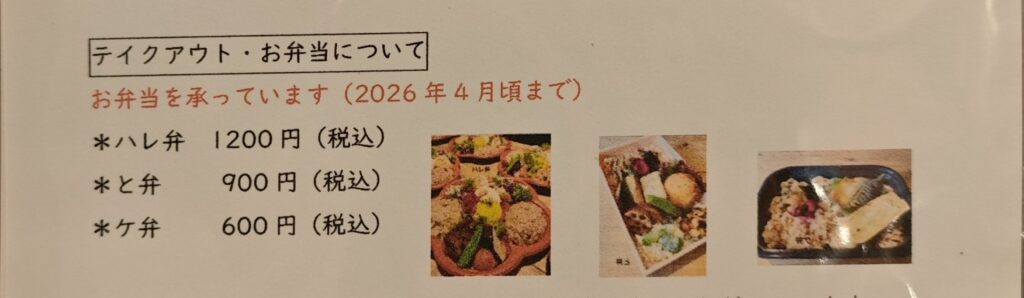 テイクアウト・お弁当について
お弁当を承っています（2026年4月頃まで）
＊ハレ弁　1200円（税込）
＊と弁　900円（税込）
＊ケ弁　600円（税込）